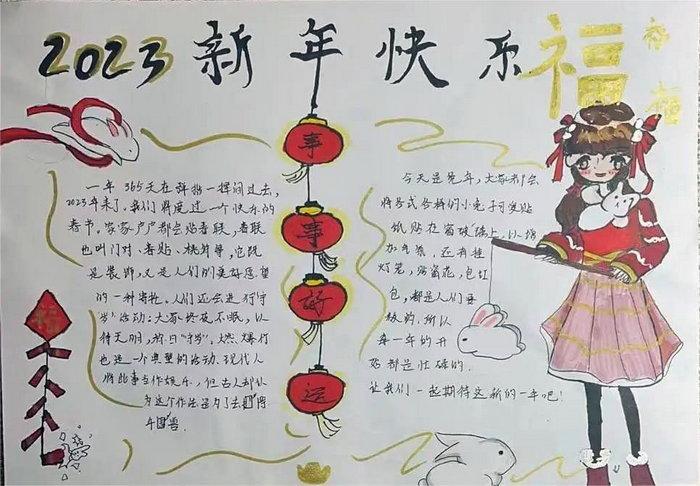 2023 新年快乐
福
福
福
事
事
好
运
一年365天在弹指一挥间过去,
2023年来了,我们将度过一个快乐的
春节。家家户户都会贴春联,春联
也叫门对、春贴、桃符等,它既
是装饰,又是人们的美好愿望
的一种寄托。人们还会进行"守
岁"活动:大家终夜不眠,以
待天明,称曰"守岁"。燃爆竹
也是一个典型的活动,现代人
将此事当作娱乐,但古人却认
为这个作法是为了去
年兽.
今天是兔年,大家都会
将各式各样的小兔子可爱贴
纸贴在窗玻璃上,以增
加气氛,还有挂
灯笼,贴窗花,包红
包,都是人们要
做的,所以
每一年的开
始都是忙碌的.
让我们一起期待这新的一年吧!
福